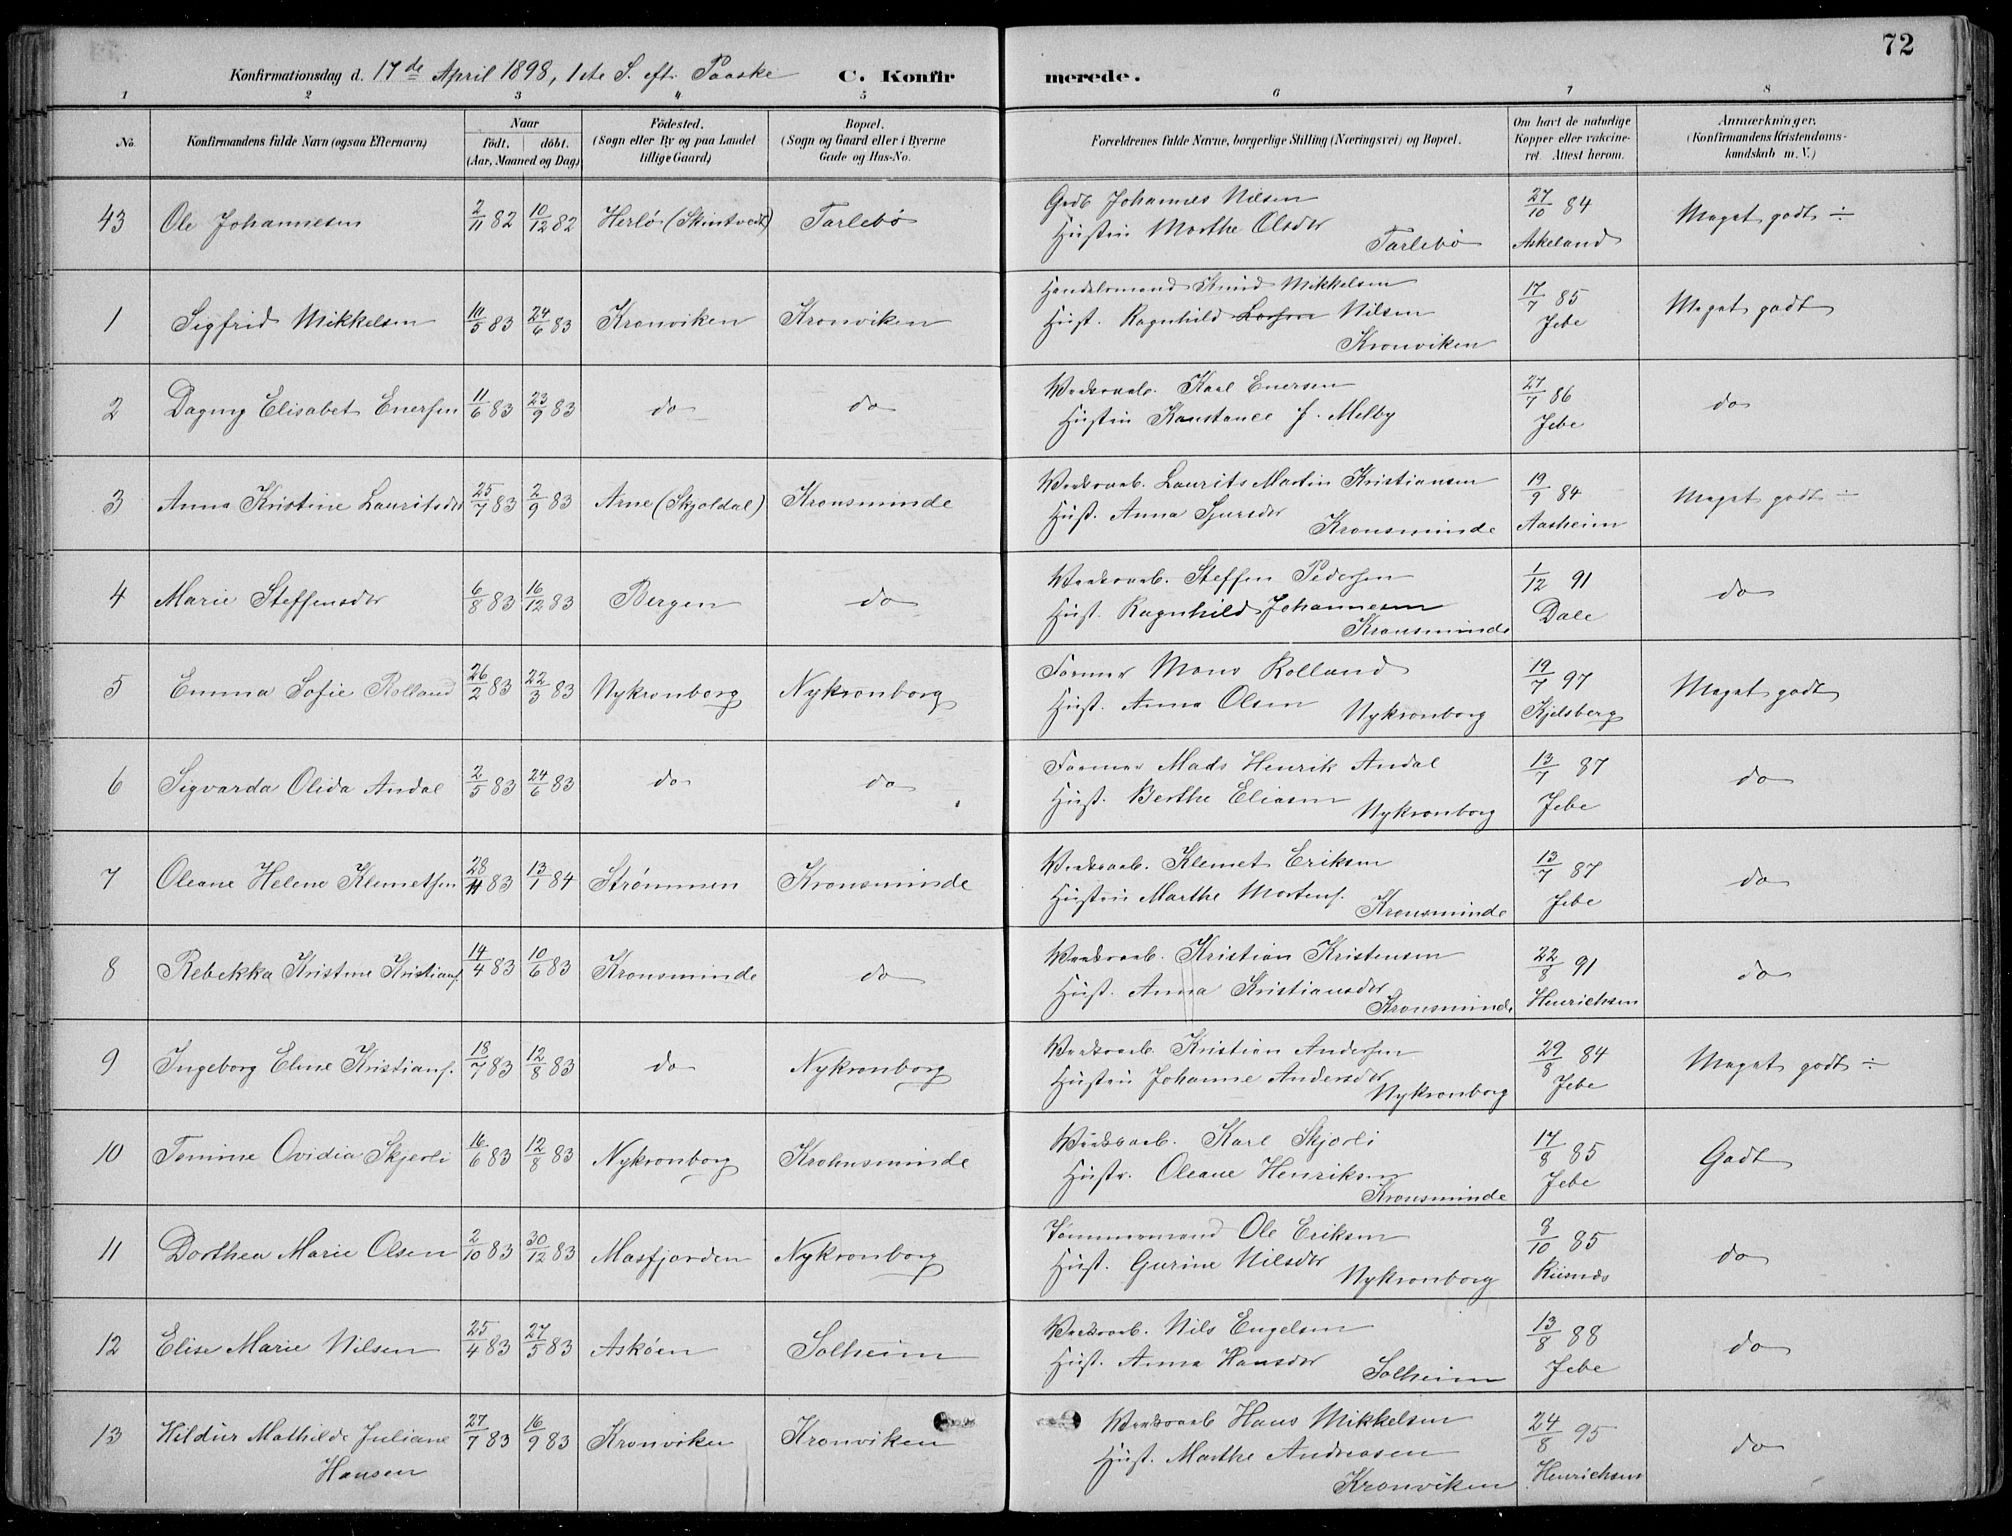 72
Konfirmationsdag d. 17de April 1898, 1ste S. eft. Paaske C. Konfirmerede.
1 2 3 4 5 6 7 8
No. Konfirmandens fulde Navn (ogsaa Efternavn) Naar födt. döbt. (Aar, Maaned og Dag) Födested. (Sogn eller By og paa Landet tillige Gaard) Bopæl. (Sogn og Gaard eller i Byerne Gade og Hus-No. Forældrenes fulde Navne, borgerlige Stilling (Næringsvei) og Bopæl. Om havt de naturlige Kopper eller vakcineret. Attest herom. Anmærkninger. (Konfirmandens Kristendomskundskab m. V.)
43 Ole Johannesen 2/11 82 10/12 82 Herlø (Skintvedt) Tarlebø Gndb Johannes Nilsen Hustru Marthe Olsdtr Tarlebø 27/10 84 Askeland Meget godt ÷
1 Sigfrid Mikkelsen 10/5 83 24/6 83 Kronviken Kronviken Handelsmand Knud Mikkelsen Hust. Ragnhild Larsen Nilsen Kronviken 17/7 85 Jebe Meget godt
2 Dagny Elisabet Enersen 11/6 83 23/9 83 do do Værksarb. Karl Enersen Hustru Konstance f. Melby 27/7 86 Jebe do
3 Anna Kristine Lauritsdtr 25/7 83 2/9 83 Arne (Skjoldal) Kronsminde Værksarb. Laurits Martin Kristiansen Hust. Anna Sjursdtr Kronsminde 19/9 84 Aasheim Meget godt ÷
4 Marie Steffensdtr 6/8 83 16/12 83 Bergen do Værksarb. Steffen Pedersen Hust. Ragnhild Johannesen Kronsminde 1/12 91 Dale do
5 Emma Sofie Rolland 26/2 83 22/3 83 Nykronborg Nykronborg Former Mons Rolland Hust. Anna Olsen Nykronborg 19/7 97 Kjelsberg Meget godt
6 Sigvarda Olida Andal 2/5 83 24/6 83 do do Former Mads Henrik Andal Hust. Berthe Eliasen Nykronborg 13/7 87 Jebe do
7 Oleane Helene Klemetsen 28/11 83 13/1 84 Strømmen Kronsminde Værksarb. Klemet Eriksen Hustru Marthe Mortens. Kronsminde 13/7 87 Jebe do
8 Rebekka Kristine Kristians. 14/4 83 10/6 83 Kronsminde do Værksarb. Kristian Kristensen Hust. Anna Kristiansdtr Kronsminde 22/8 91 Henrichsen do
9 Ingeborg Eline Kristians. 18/7 83 12/8 83 do Nykronborg Værksarb. Kristian Andersen Hustru Johanne Andersdtr Nykronborg 29/8 84 Jebe Meget godt ÷
10 Tomine Ovidia Skjerli 16/6 83 12/8 83 Nykronborg Krohnsminde Værksarb. Karl Skjerli Hustr. Oleane Henriksen Kronsminde 17/8 85 Jebe Godt
11 Dorthea Marie Olsen 2/10 83 30/12 83 Masfjorden Nykronborg Tømmermand Ole Eriksen Hust. Gurine Nilsdtr Nykronborg 9/10 85 Riisnæs do
12 Elise Marie Nilsen 25/4 83 27/5 83 Askøen Solheim Værksarb. Nils Engelsen Hust. Anna Hansdtr Solheim 13/8 88 Jebe do
13 Hildur Mathilde Juliane Hansen 27/7 83 16/9 83 Kronviken Kronviken Værksarb Hans Mikkelsen Hust. Marthe Andreasen Kronviken 24/8 95 Henrichsen do